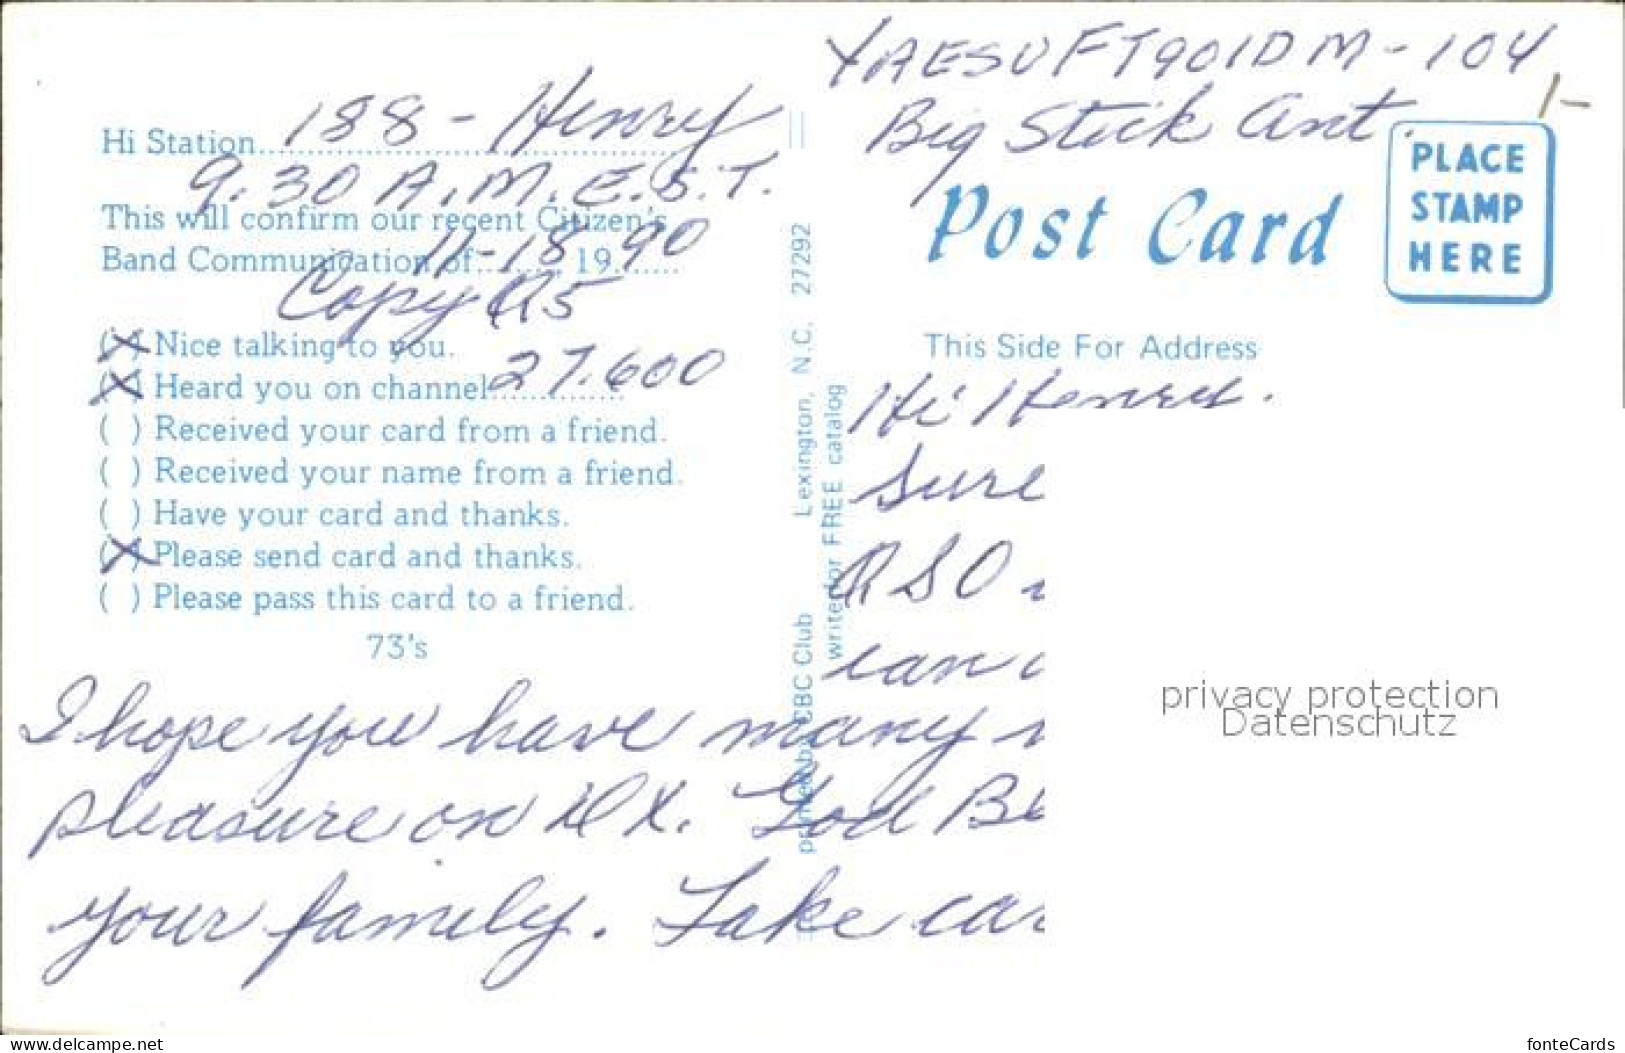 YAESU FT901DM - 104
Big Stick Ant.
1-
Hi Station 188 - Henry
9:30 A.M. E.S.T.
This will confirm our recent Citizen's
Band Communication of 11-18 1990
Copy R5
(X) Nice talking to you.
(X) Heard you on channel 27.600
( ) Received your card from a friend.
( ) Received your name from a friend.
( ) Have your card and thanks.
(X) Please send card and thanks.
( ) Please pass this card to a friend.
73's
printed by CBC Club Lexington, N.C. 27292
write for FREE catalog
Post Card
PLACE
STAMP
HERE
This Side For Address
Hi Henry.
Sure
QSO
can
I hope you have many
pleasure on DX. God Bl
your family. Take car
privacy protection
Datenschutz
www.delcampe.net
fonteCards